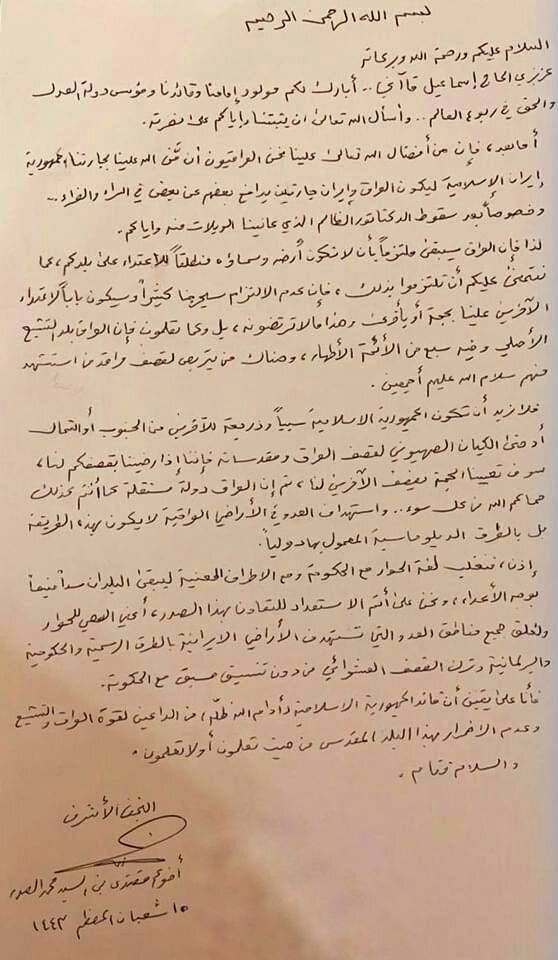 بسم الله الرحمن الرحيم
السلام عليكم ورحمة الله وبركاته
عزيزي الحاج إسماعيل قاآني.. أبارك لكم مولود إمامنا وقائدنا ومؤسس دولة العدل
والحق في ربوع العالم.. وأسأل الله تعالى ان يثبتنا وإياكم على نصرته.
أما بعد، فإن من أفضال الله تعالى علينا نحن العراقيون أن منّ الله علينا بجارتنا الجمهورية
إيران الإسلامية ليكون العراق وإيران جارتين يدافع بعضهم عن بعض في السراء والضراء..
وخصوصاً بعد سقوط الدكتاتور الظالم الذي عانينا الويلات منه وإياكم.
لذا فإن العراق سيبقى ملتزماً بأن لا تكون أرضه وسماؤه منطلقاً للإعتداء على بلدكم، كما
نتمنى عليكم أن تلتزموا بذلك، فإن عدم الالتزام سيحرجنا كثيراً وسيكون باباً لإعتداء
الآخرين علينا بحجة أو بأخرى وهذا ما لا ترتضونه، بل وكما تعلمون فإن العراق بلد التشيع
الأصلي وفيه سبع من الأئمة الأطهار، وهناك من يتربص لقصف مراقد من استشهد
منهم سلام الله عليهم أجمعين.
فلا نريد أن تكون الجمهورية الاسلامية سبباً وذريعة للآخرين من الجنوب أو الشمال
أو حتى الكيان الصهيوني لقصف العراق ومقدساته فإننا إذا رضينا بقصفكم لنا،
سوف تعيينا الحجة بقصف الآخرين لنا، ثم إن العراق دولة مستقلة كما أنتم كذلك
حماكم الله من كل سوء.. واستهداف العدو في الأراضي العراقية لا يكون بهذه الطريقة
بل بالطرق الدبلوماسية المعمول بها دولياً.
إذن، فنغلب لغة الحوار مع الحكومة ومع الاطراف المعنية ليبقى البلدان سداً منيعاً
بوجه الأعداء، ونحن على أتم الاستعداد للتعاون بهذا الصدد، أعني السعي للحوار
ولغلق جميع مناطق العدو التي تستهدف الأراضي الايرانية بالطرق الرسمية والحكومية
والبرلمانية وترك القصف العشوائي من دون تنسيق مسبق مع الحكومة.
فأنا على يقين أن قائد الجمهورية الاسلامية (أدام الله ظله) من الداعين لقوة العراق والتشيع
وعدم الاضرار بهذا البلد المقدس من حيث تعلمون أو لا تعلمون.
والسلام ختام.
النجف الأشرف
أخوكم مقتدى بن السيد محمد الصدر
١٥ شعبان المعظم ١٤٤٣